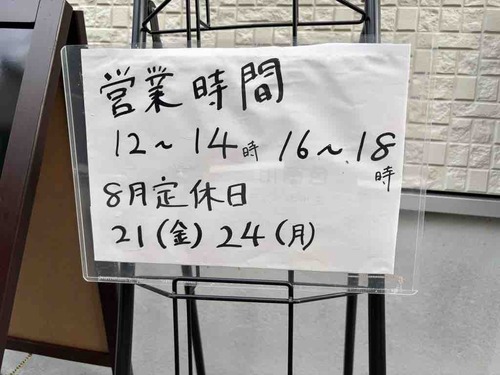 営業時間
12～14時 16～18時
8月定休日
21(金) 24(月)